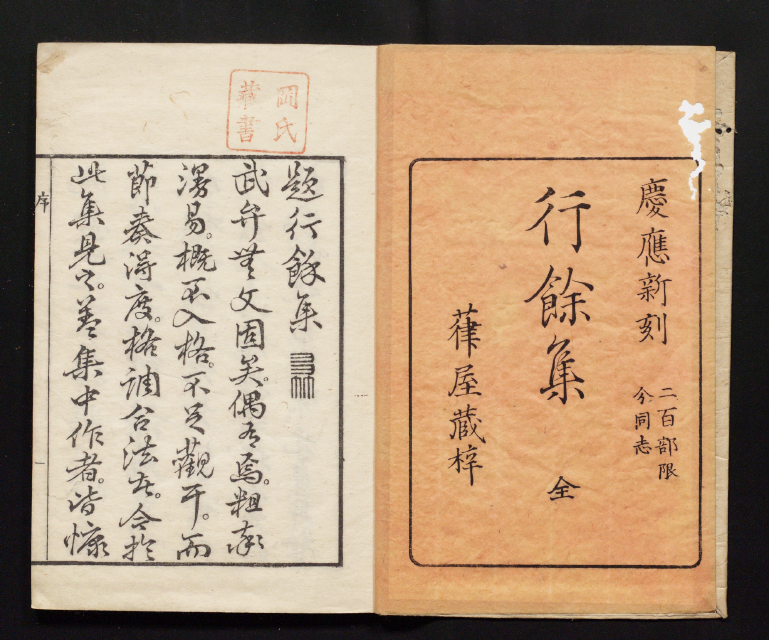 慶應新刻
二百部限
分同志
行餘集 全
葎屋蔵梓
岡氏
題行餘集
武弁无文固矣。偶有焉。粗率
漫易。概不入格。不足觀耳。而
節奏得度。格調合法者。今於
此集見之。蓋集中作者。皆慷
序
一